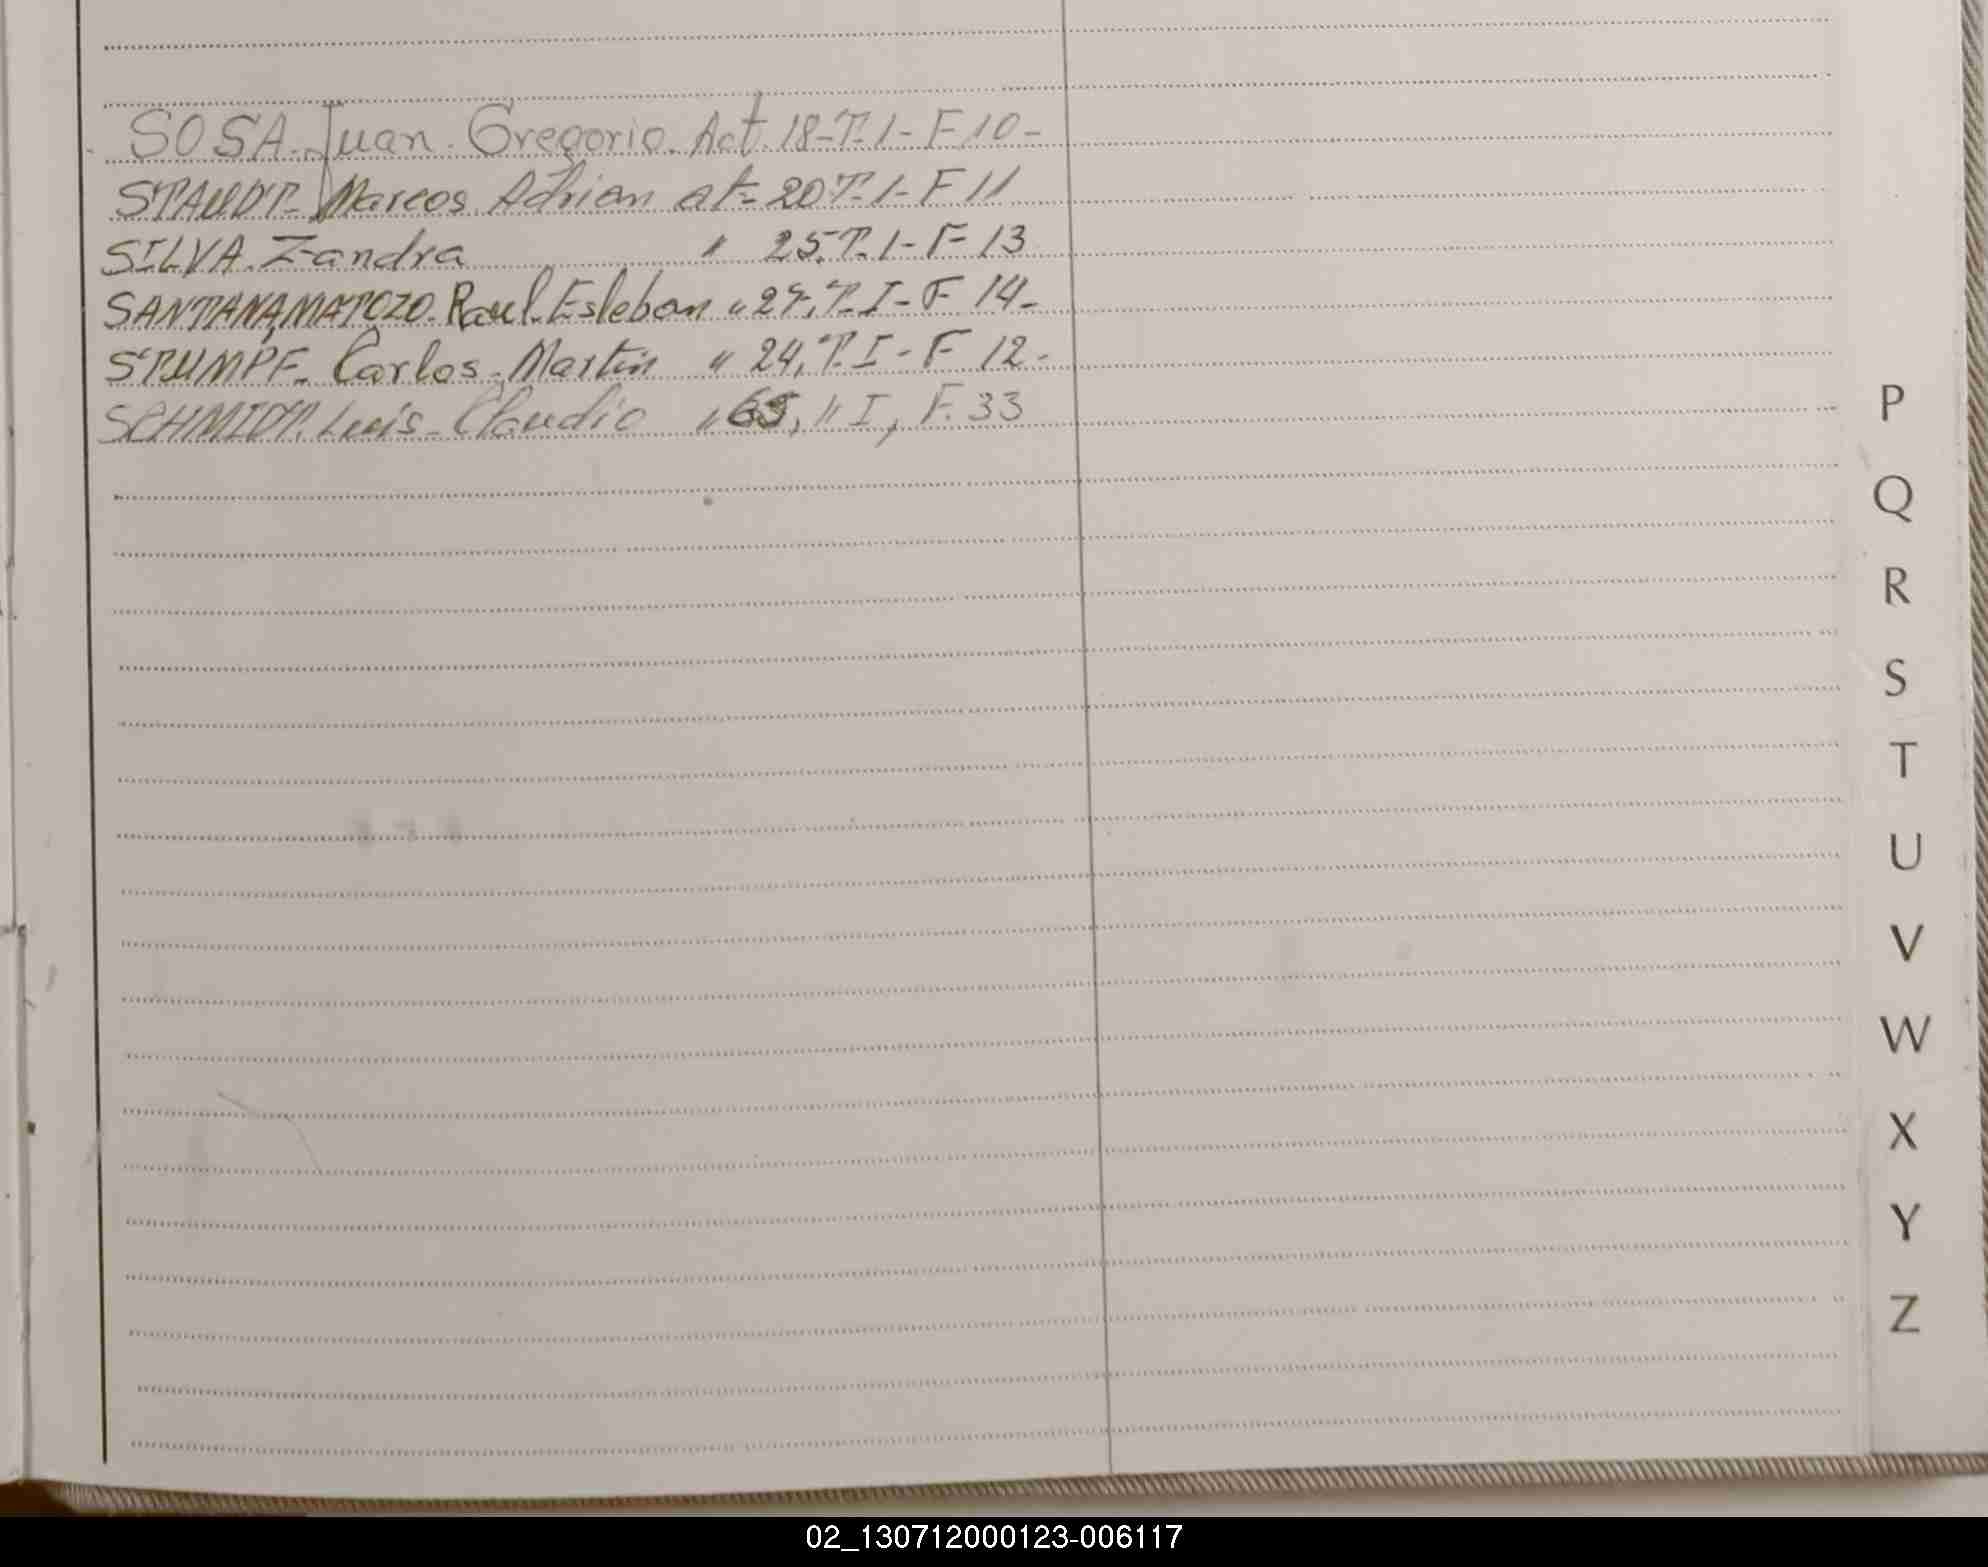 SOSA. Juan. Gregorio. Act. 18-T. 1- F 10-
STAUDT- Marcos Adrian at- 20 T- 1- F 11
SILVA. Zandra " 25. T. 1- F 13
SANTANA, MATOZO. Raul. Esteban " 27. T. I- F 14-
STUMPF- Carlos- Martin " 24, T. I- F 12-
SCHMIDT. Luis- Claudio " 65, " I, F. 33
P
Q
R
S
T
U
V
W
X
Y
Z
02_130712000123-006117